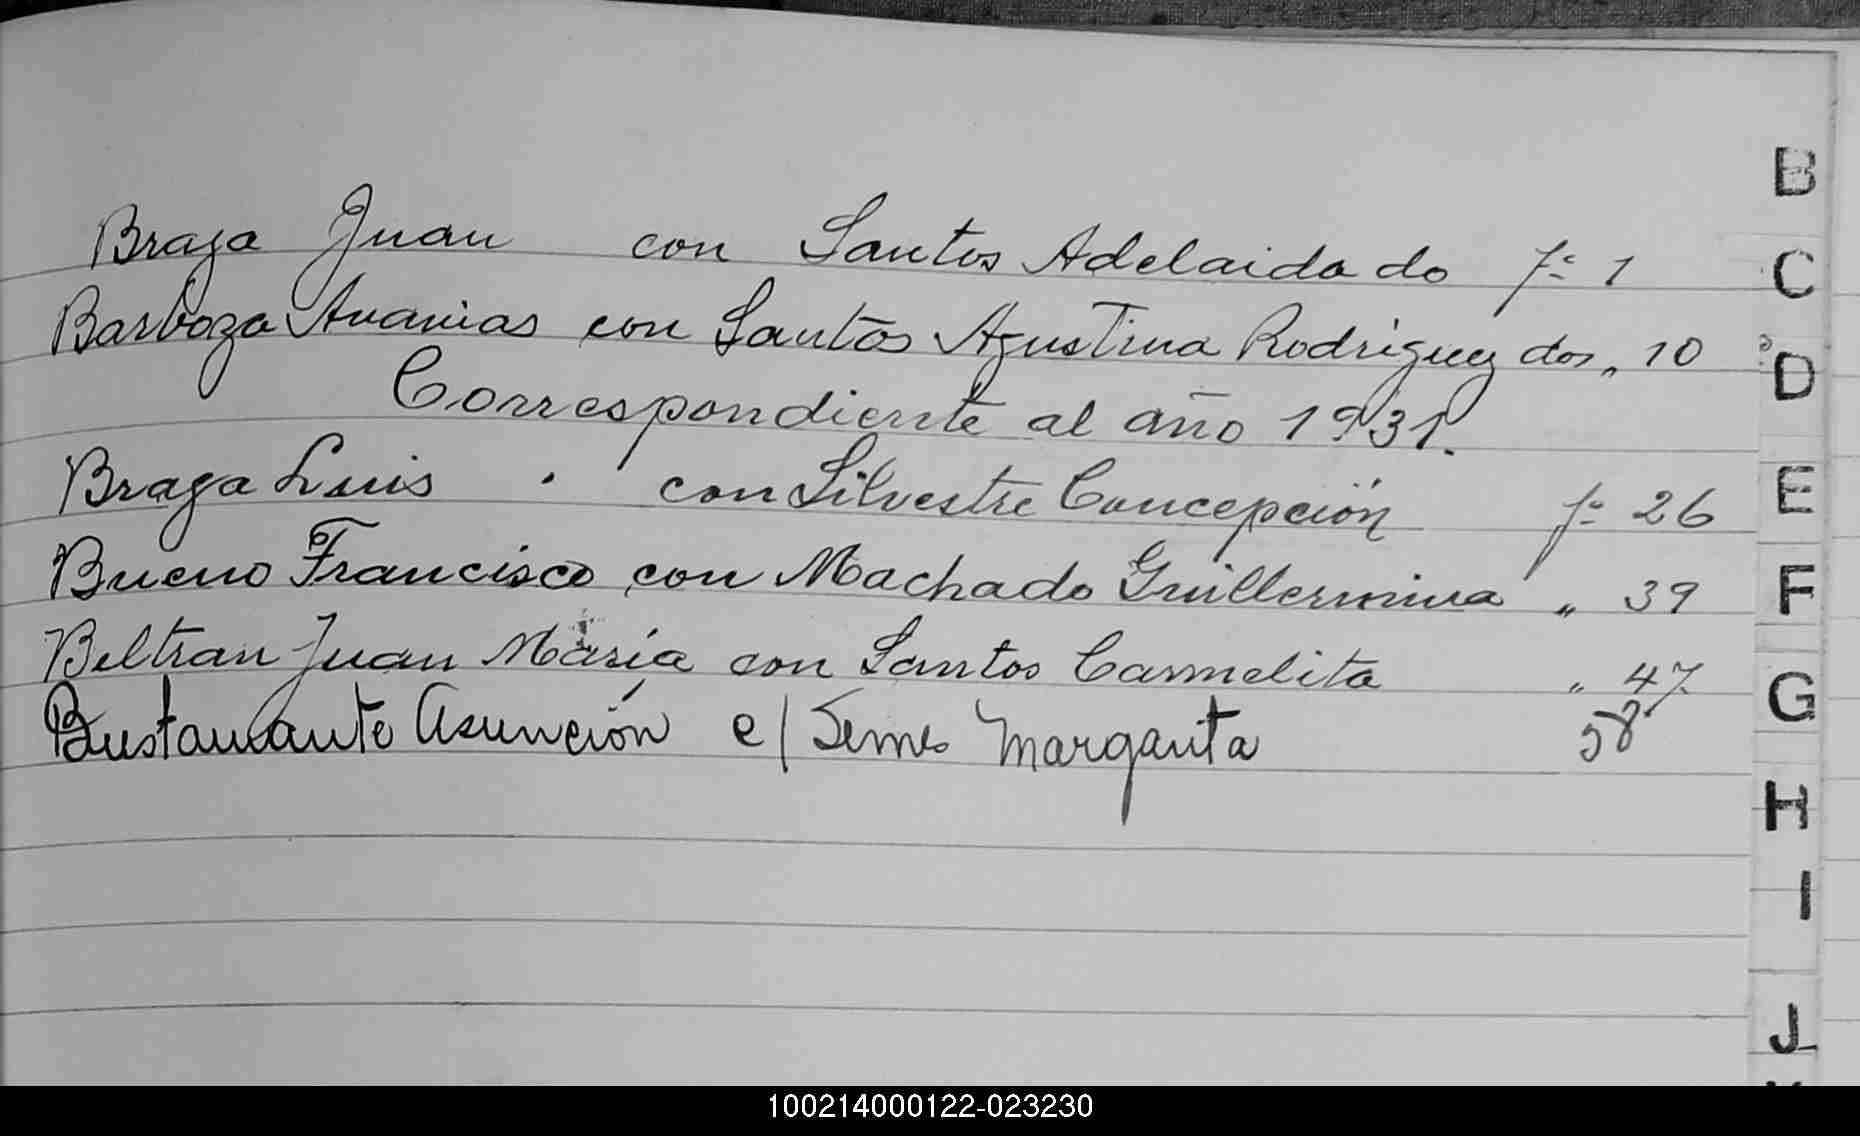 Braga Juan con Santos Adelaida do fº 1
Barboza Ananias con Santos Agustina Rodriguez dos „ 10
Correspondiente al año 1931.
Braga Luis · con Silvestre Concepción fº 26
Bueno Francisco con Machado Guillermina „ 39
Beltran Juan María con Santos Carmelita „ 47
Bustamante Asunción c/ Margarita 58
B
C
D
E
F
G
H
I
J
100214000122-023230